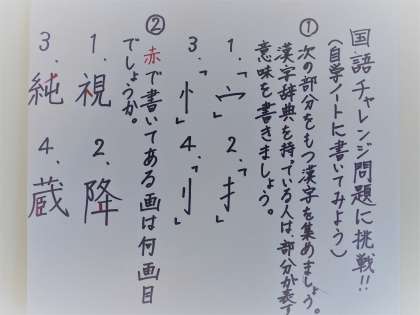 国語チャレンジ問題に挑戦!!
（自学ノートに書いてみよう）
① 次の部分をもつ漢字を集めましょう。
漢字辞典を持っている人は、部分が表す
意味を書きましょう。
1.「宀」 2.「扌」
3.「忄」 4.「刂」
② 赤で書いてある画は何画目
でしょうか。
1. 視 2. 降
3. 純 4. 蔵